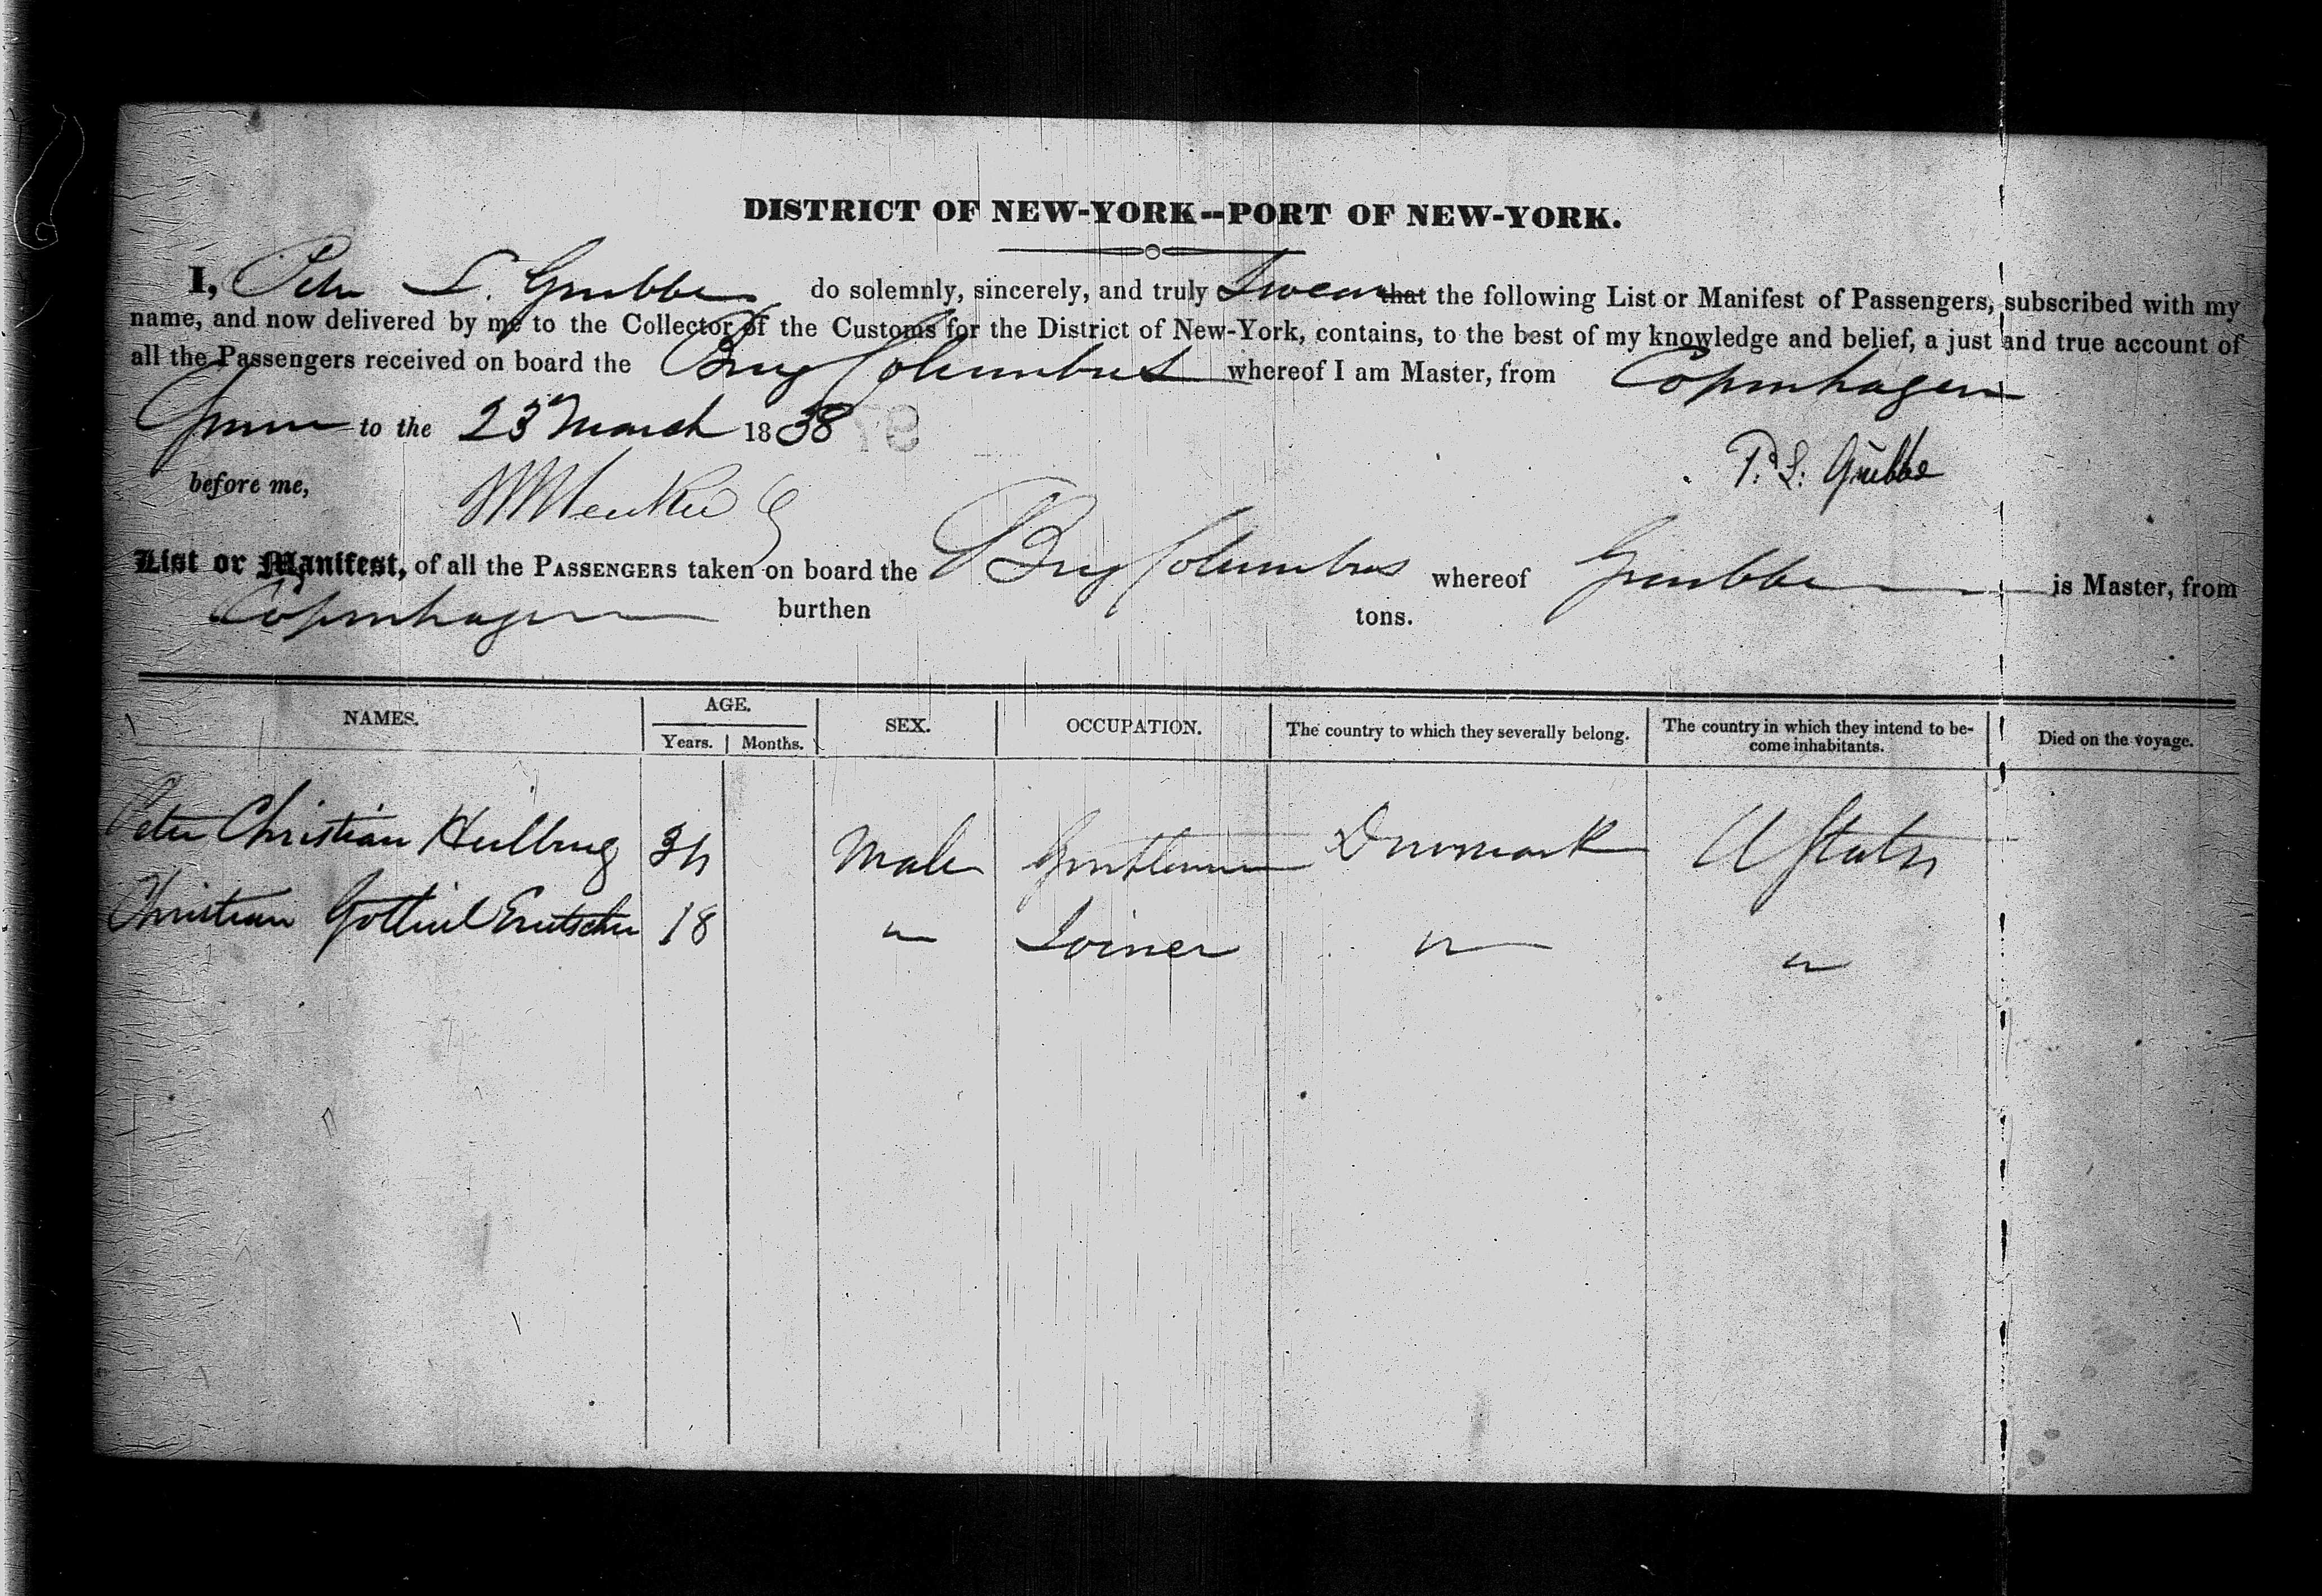 DISTRICT OF NEW-YORK--PORT OF NEW-YORK.
I, Peter L. Grubbe do solemnly, sincerely, and truly Swear that the following List or Manifest of Passengers, subscribed with my
name, and now delivered by me to the Collector of the Customs for the District of New-York, contains, to the best of my knowledge and belief, a just and true account of
all the Passengers received on board the Brig Columbus whereof I am Master, from Copenhagen
to the 23 March 1838
P. L. Grubbe
before me,
List or Manifest, of all the PASSENGERS taken on board the Brig Columbus whereof Grubbe is Master, from
Copenhagen burthen tons.
NAMES. AGE. Years. Months. SEX. OCCUPATION. The country to which they severally belong. The country in which they intend to become inhabitants. Died on the voyage.
Peter Christian 34 Male Gentleman Denmark U States
Christian 18 " Joiner " "